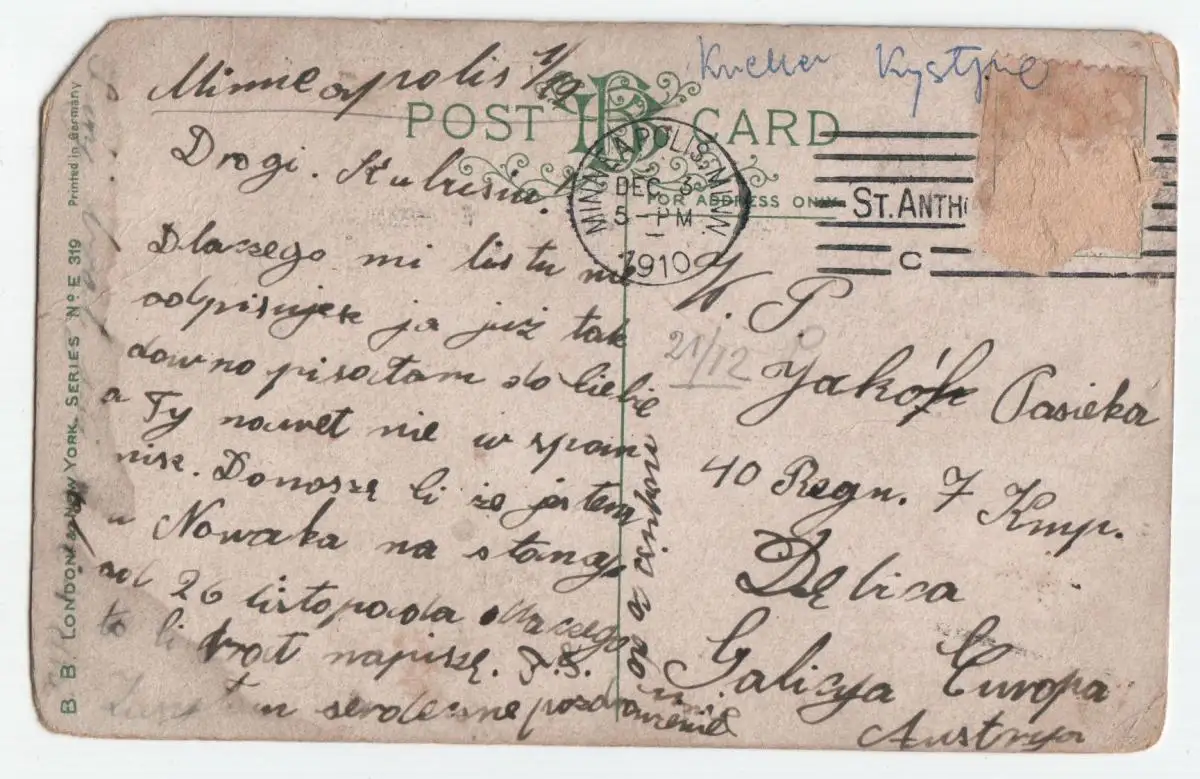 Minneapolis 1/12
POST CARD
FOR ADDRESS ONLY
MINNEAPOLIS, MINN.
DEC 3
5-PM
1910
ST. ANTH
C
Drogi
Dlaczego mi listu nie
odpisujesz ja już tak
downo pisałam do Ciebie
a Ty nawet nie w spom
nisz. Donoszę Ci że jestem
u Nowaka na stancyi
od 26 listopada dlaczego
to Ci brat napiszę. J.S.
serdeczne pozdrowienie
od
W. P.
21/12
Jakób Pasieka
40 Regn. 7 Kmp.
Dębica
Galicya Europa
Austrya
B. B. LONDON & NEW YORK. SERIES Nº E 319 Printed in Germany